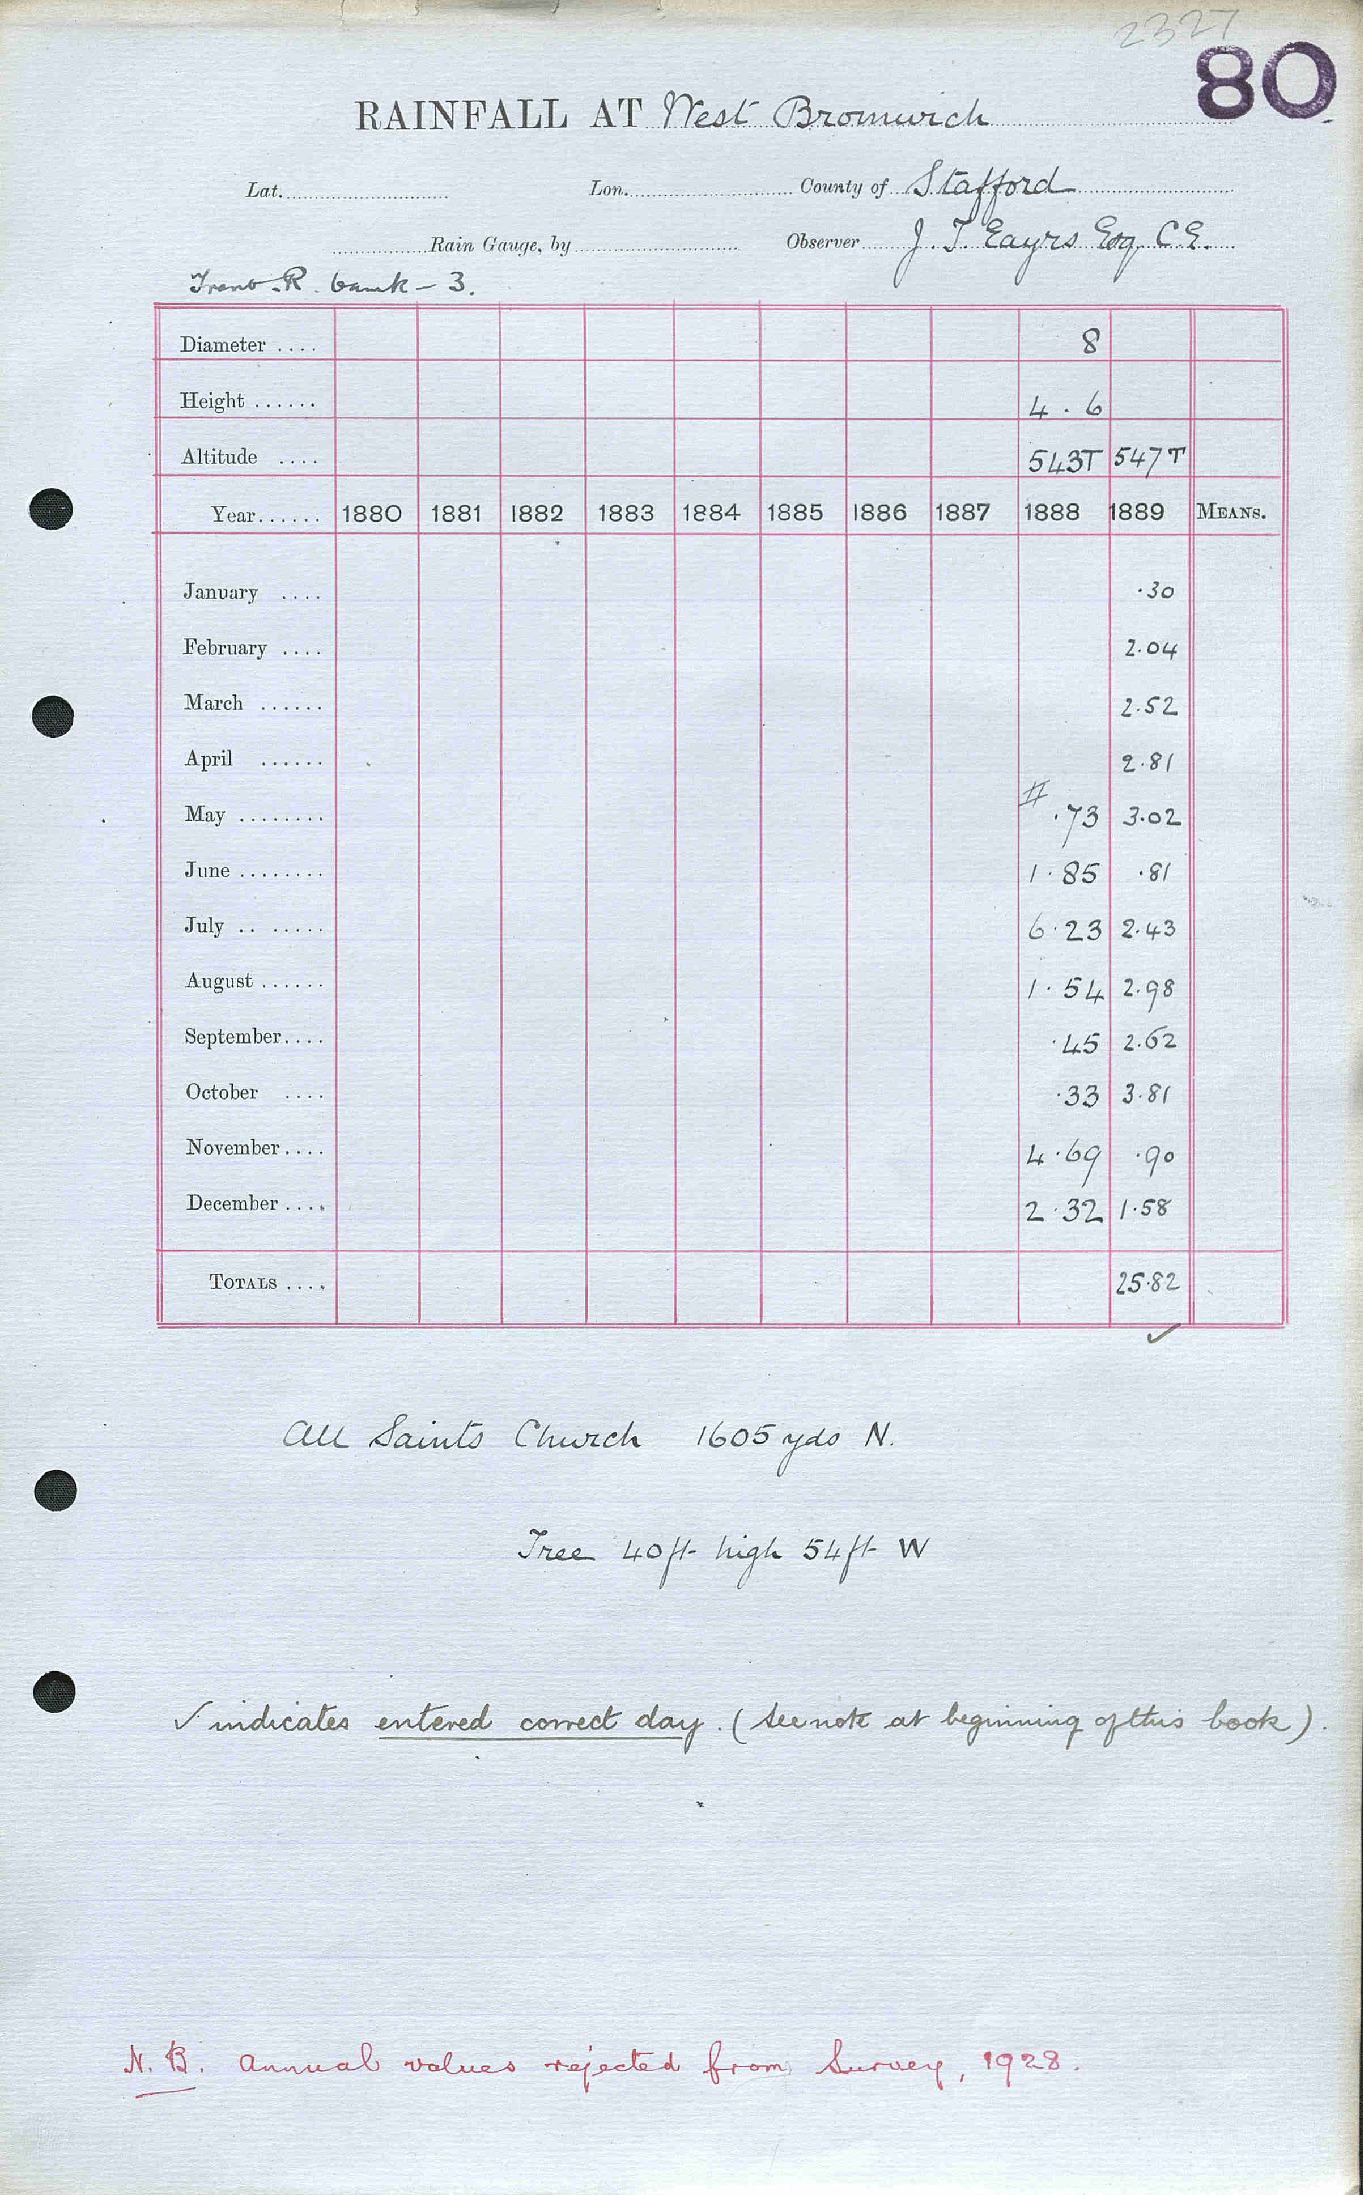 2327
80
RAINFALL AT West Bromwich
Lat. Lon. County of Stafford
Rain Gauge, by Observer J. T. Eayrs Esq. C.E.
Trent R. bank – 3.
Diameter .... 8
Height ...... 4 . 6
Altitude .... 543T 547T
Year...... 1880 1881 1882 1883 1884 1885 1886 1887 1888 1889 MEANS.
January .... ·30
February .... 2·04
March ...... 2·52
April ...... 2·81
May ........ # ·73 3·02
June ........ 1·85 ·81
July .. ..... 6·23 2·43
August ...... 1·54 2·98
September.... ·45 2·62
October .... ·33 3·81
November.... 4·69 ·90
December.... 2·32 1·58
TOTALS .... 25·82
✓
All Saints Church 1605 yds N.
Tree 40ft high 54ft W
✓ indicates entered correct day. (See note at beginning of this book).
N.B. Annual values rejected from Survey, 1928.